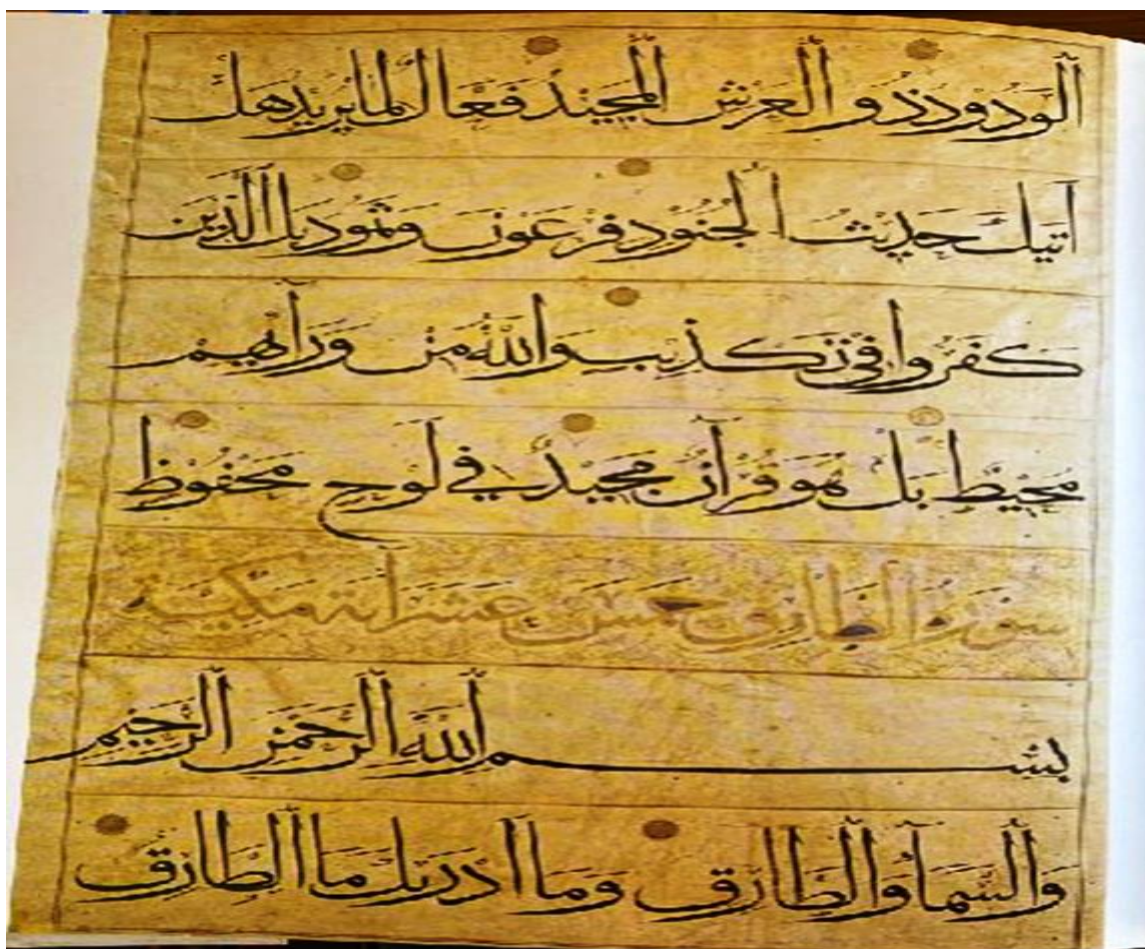 الودود ذو العرش المجيد فعال لما يريد هل
اتيك حديث الجنود فرعون وثمود بل الذين
كفروا في تكذيب والله من ورآئهم
محيط بل هو قرآن مجيد في لوح محفوظ
سورة الطارق خمس عشر آية مكية
بسم الله الرحمن الرحيم
والسمآ والطارق وما ادريك ما الطارق